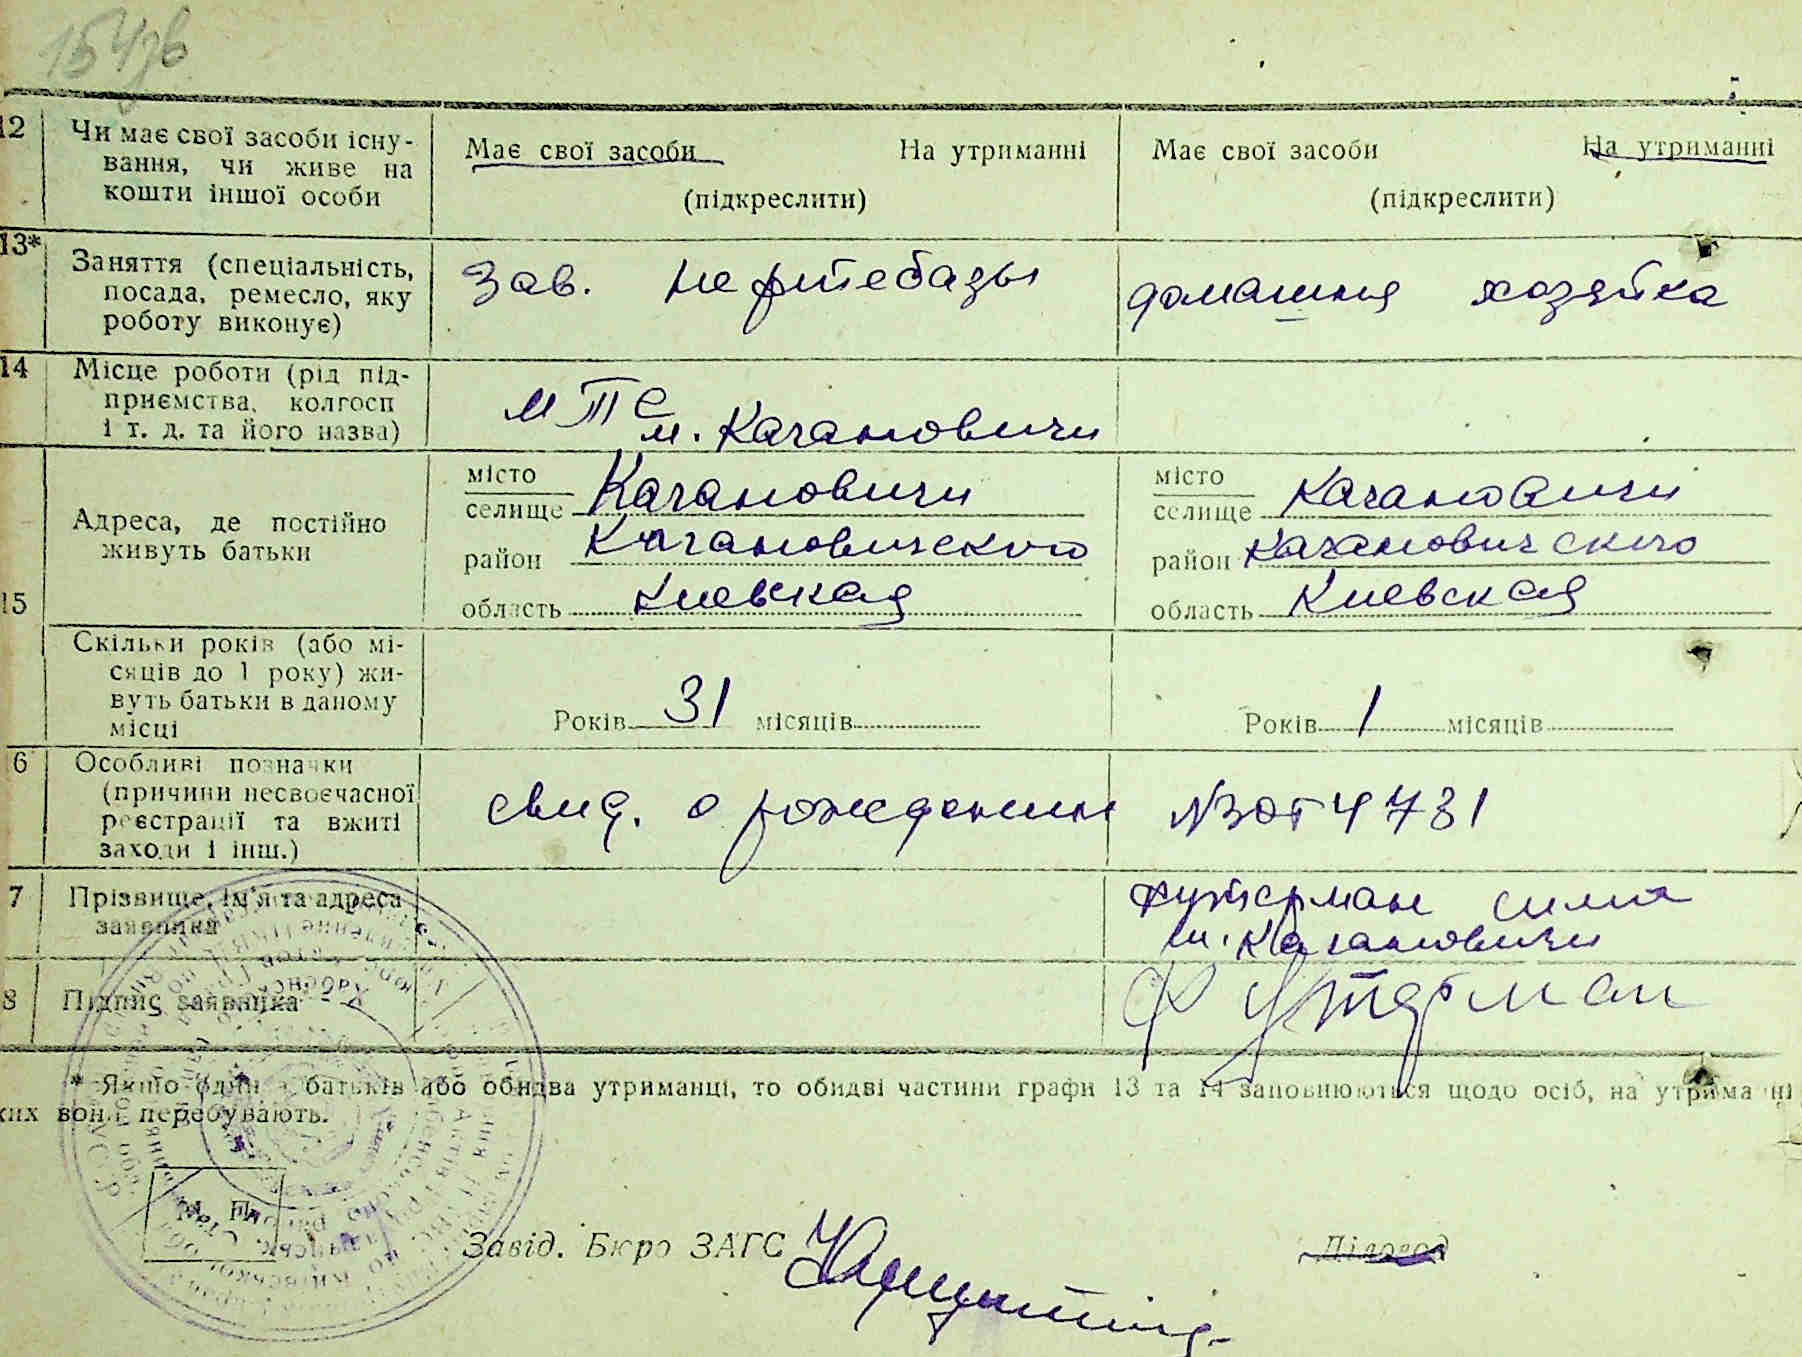 154зв
12 Чи має свої засоби існу-
вання, чи живе на
кошти іншої особи
Має свої засоби На утриманні
(підкреслити)
Має свої засоби На утриманні
(підкреслити)
13* Заняття (спеціальність,
посада, ремесло, яку
роботу виконує)
Зав. нефтебазы
домашня хозяйка
14 Місце роботи (рід під-
приємства, колгосп
і т. д. та його назва)
МТС
м. Кагановичи
15 Адреса, де постійно
живуть батьки
місто
селище Кагановичи
район Кагановичского
область Киевская
місто
селище Кагановичи
район Кагановичского
область Киевская
Скільки років (або мі-
сяців до 1 року) жи-
вуть батьки в даному
місці
Років 31 місяців
Років 1 місяців
6 Особливі позначки
(причини несвоєчасної
реєстрації та вжиті
заходи і інш.)
свид. о рождении №
4731
7 Прізвище, ім'я та адреса
заявника
Футерман Сима
м. Кагановичи
8 Підпис заявника
Футерман
* Якщо один з батьків або обидва утриманці, то обидві частини графи 13 та 14 заповнюються щодо осіб, на утриманні
ких вони перебувають.
М. П.
Завід. Бюро ЗАГС
Діловод